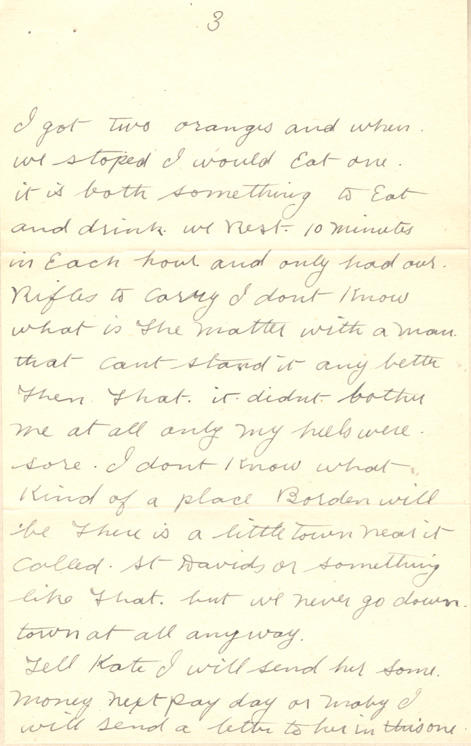 3
I got two oranges and when.
we stoped I would Eat one.
it is both something to Eat
and drink. we Rest. 10 minutes
in Each hour and only had our.
Rifles to carry I dont Know
what is The matter with a man.
that cant stand it any bettr
Then That. it didnt bother
me at all only my heels were.
sore. I dont Know what.
Kind of a place Borden will
be There is a little town near it
called. St Davids or something
like That. but we never go down.
town at all anyway.
Tell Kate I will send her some.
money next pay day or maby I
will send a letter to her in this one